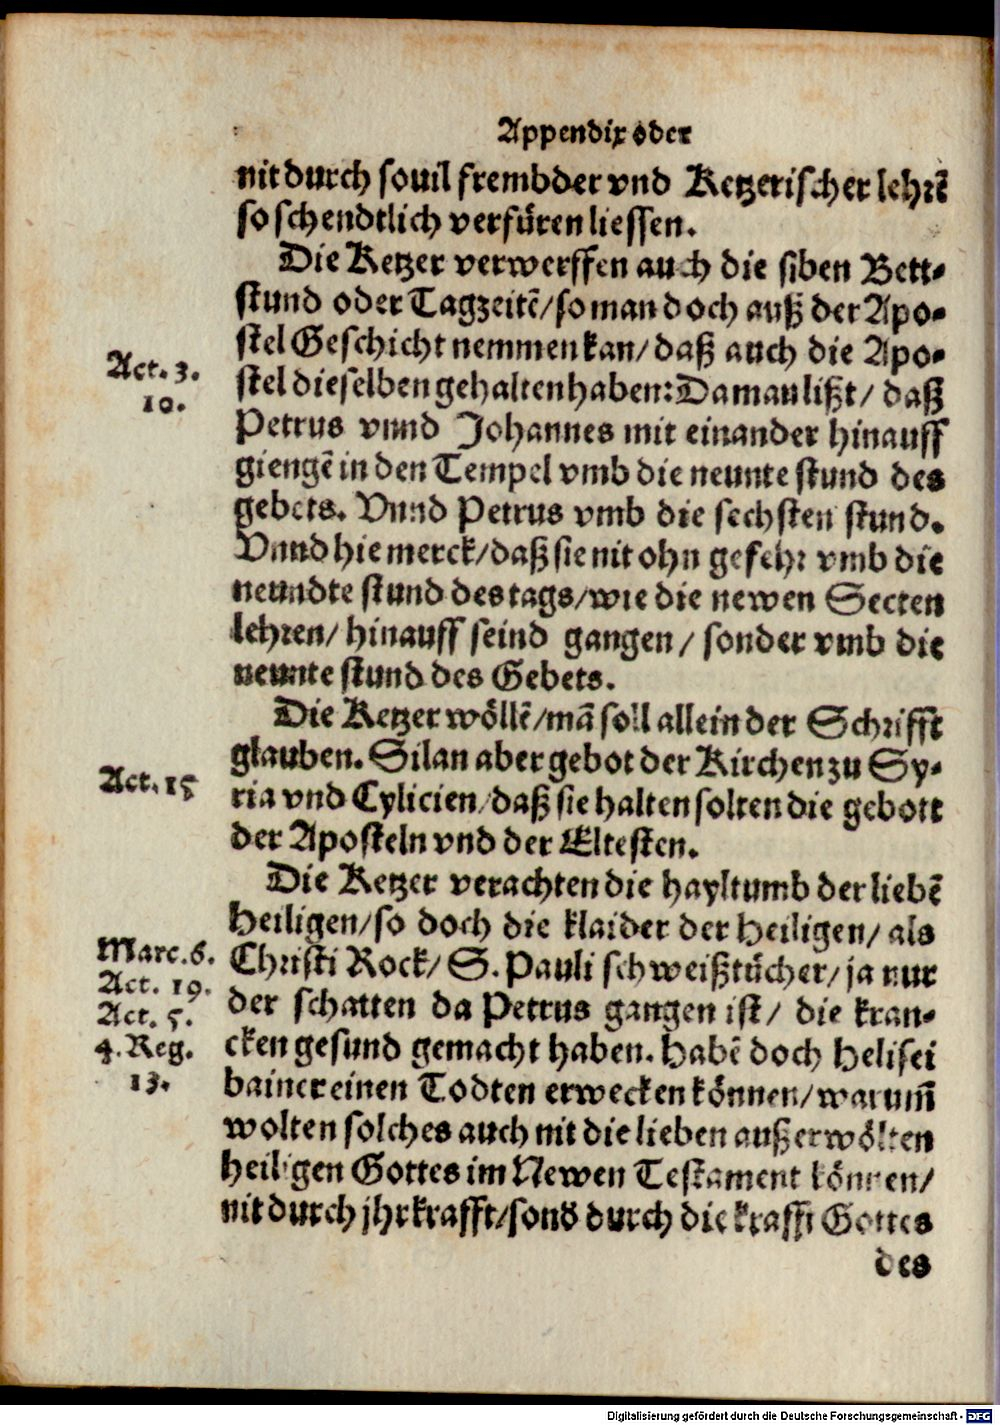 Appendix oder
nit durch souil frembder vnd Ketzerischer lehrẽ
so schendtlich verfüren liessen.
Die Ketzer verwerffen auch die siben Bett-
stund oder Tagzeitẽ/ so man doch auß der Apo-
stel Geschicht nemmen kan/ daß auch die Apo-
Act. 3.
10.
stel dieselben gehalten haben: Da man lißt/ daß
Petrus vnnd Johannes mit einander hinauff
giengẽ in den Tempel vmb die neunte stund des
gebets. Vnnd Petrus vmb die sechsten stund.
Vnnd hie merck/ daß sie nit ohn gefehr vmb die
neundte stund des tags/ wie die newen Secten
lehren/ hinauff seind gangen/ sonder vmb die
neunte stund des Gebets.
Die Ketzer wöllẽ/ mã soll allein der Schrifft
glauben. Silan aber gebot der Kirchen zu Sy-
Act. 15
ria vnd Cylicien/ daß sie halten solten die gebott
der Aposteln vnd der Eltesten.
Die Ketzer verachten die hayltumb der liebẽ
Heiligen/ so doch die klaider der Heiligen/ als
Marc. 6.
Act. 19.
Act. 5.
4. Reg.
13.
Christi Rock/ S. Pauli schweißtücher/ ja nur
der schatten da Petrus gangen ist/ die kran-
cken gesund gemacht haben. Habẽ doch Helisei
bainer einen Todten erwecken können/ warum̃
wolten solches auch nit die lieben außerwölten
heiligen Gottes im Newen Testament können/
nit durch jhr krafft/ sond̕ durch die krafft Gottes
des
Digitalisierung gefördert durch die Deutsche Forschungsgemeinschaft - DFG